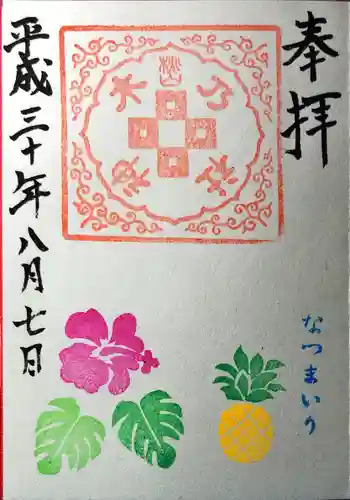 奉拝
平成三十年八月七日
なつまいり